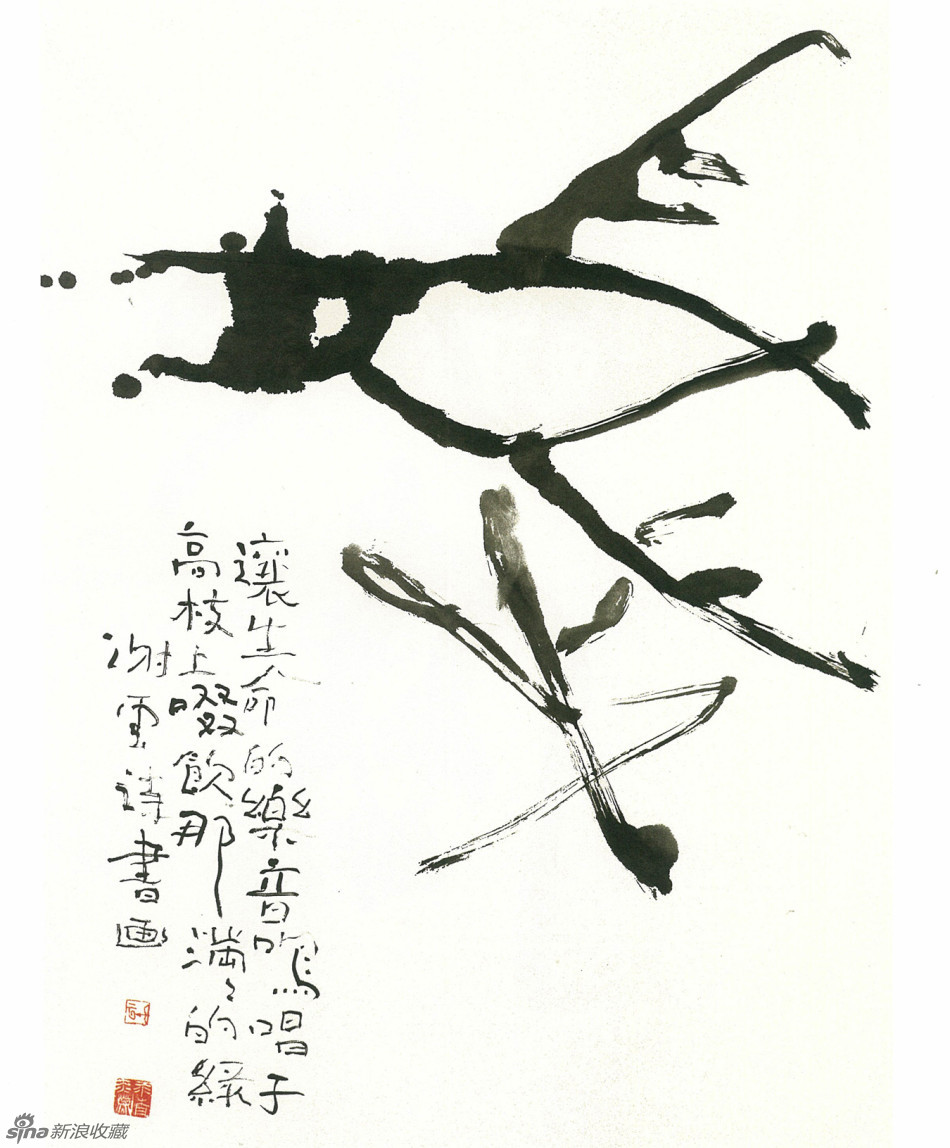 讓生命的樂音鳴唱于
高枝上啜飲那满々的緑
谢雲诗書画
sina新浪收藏